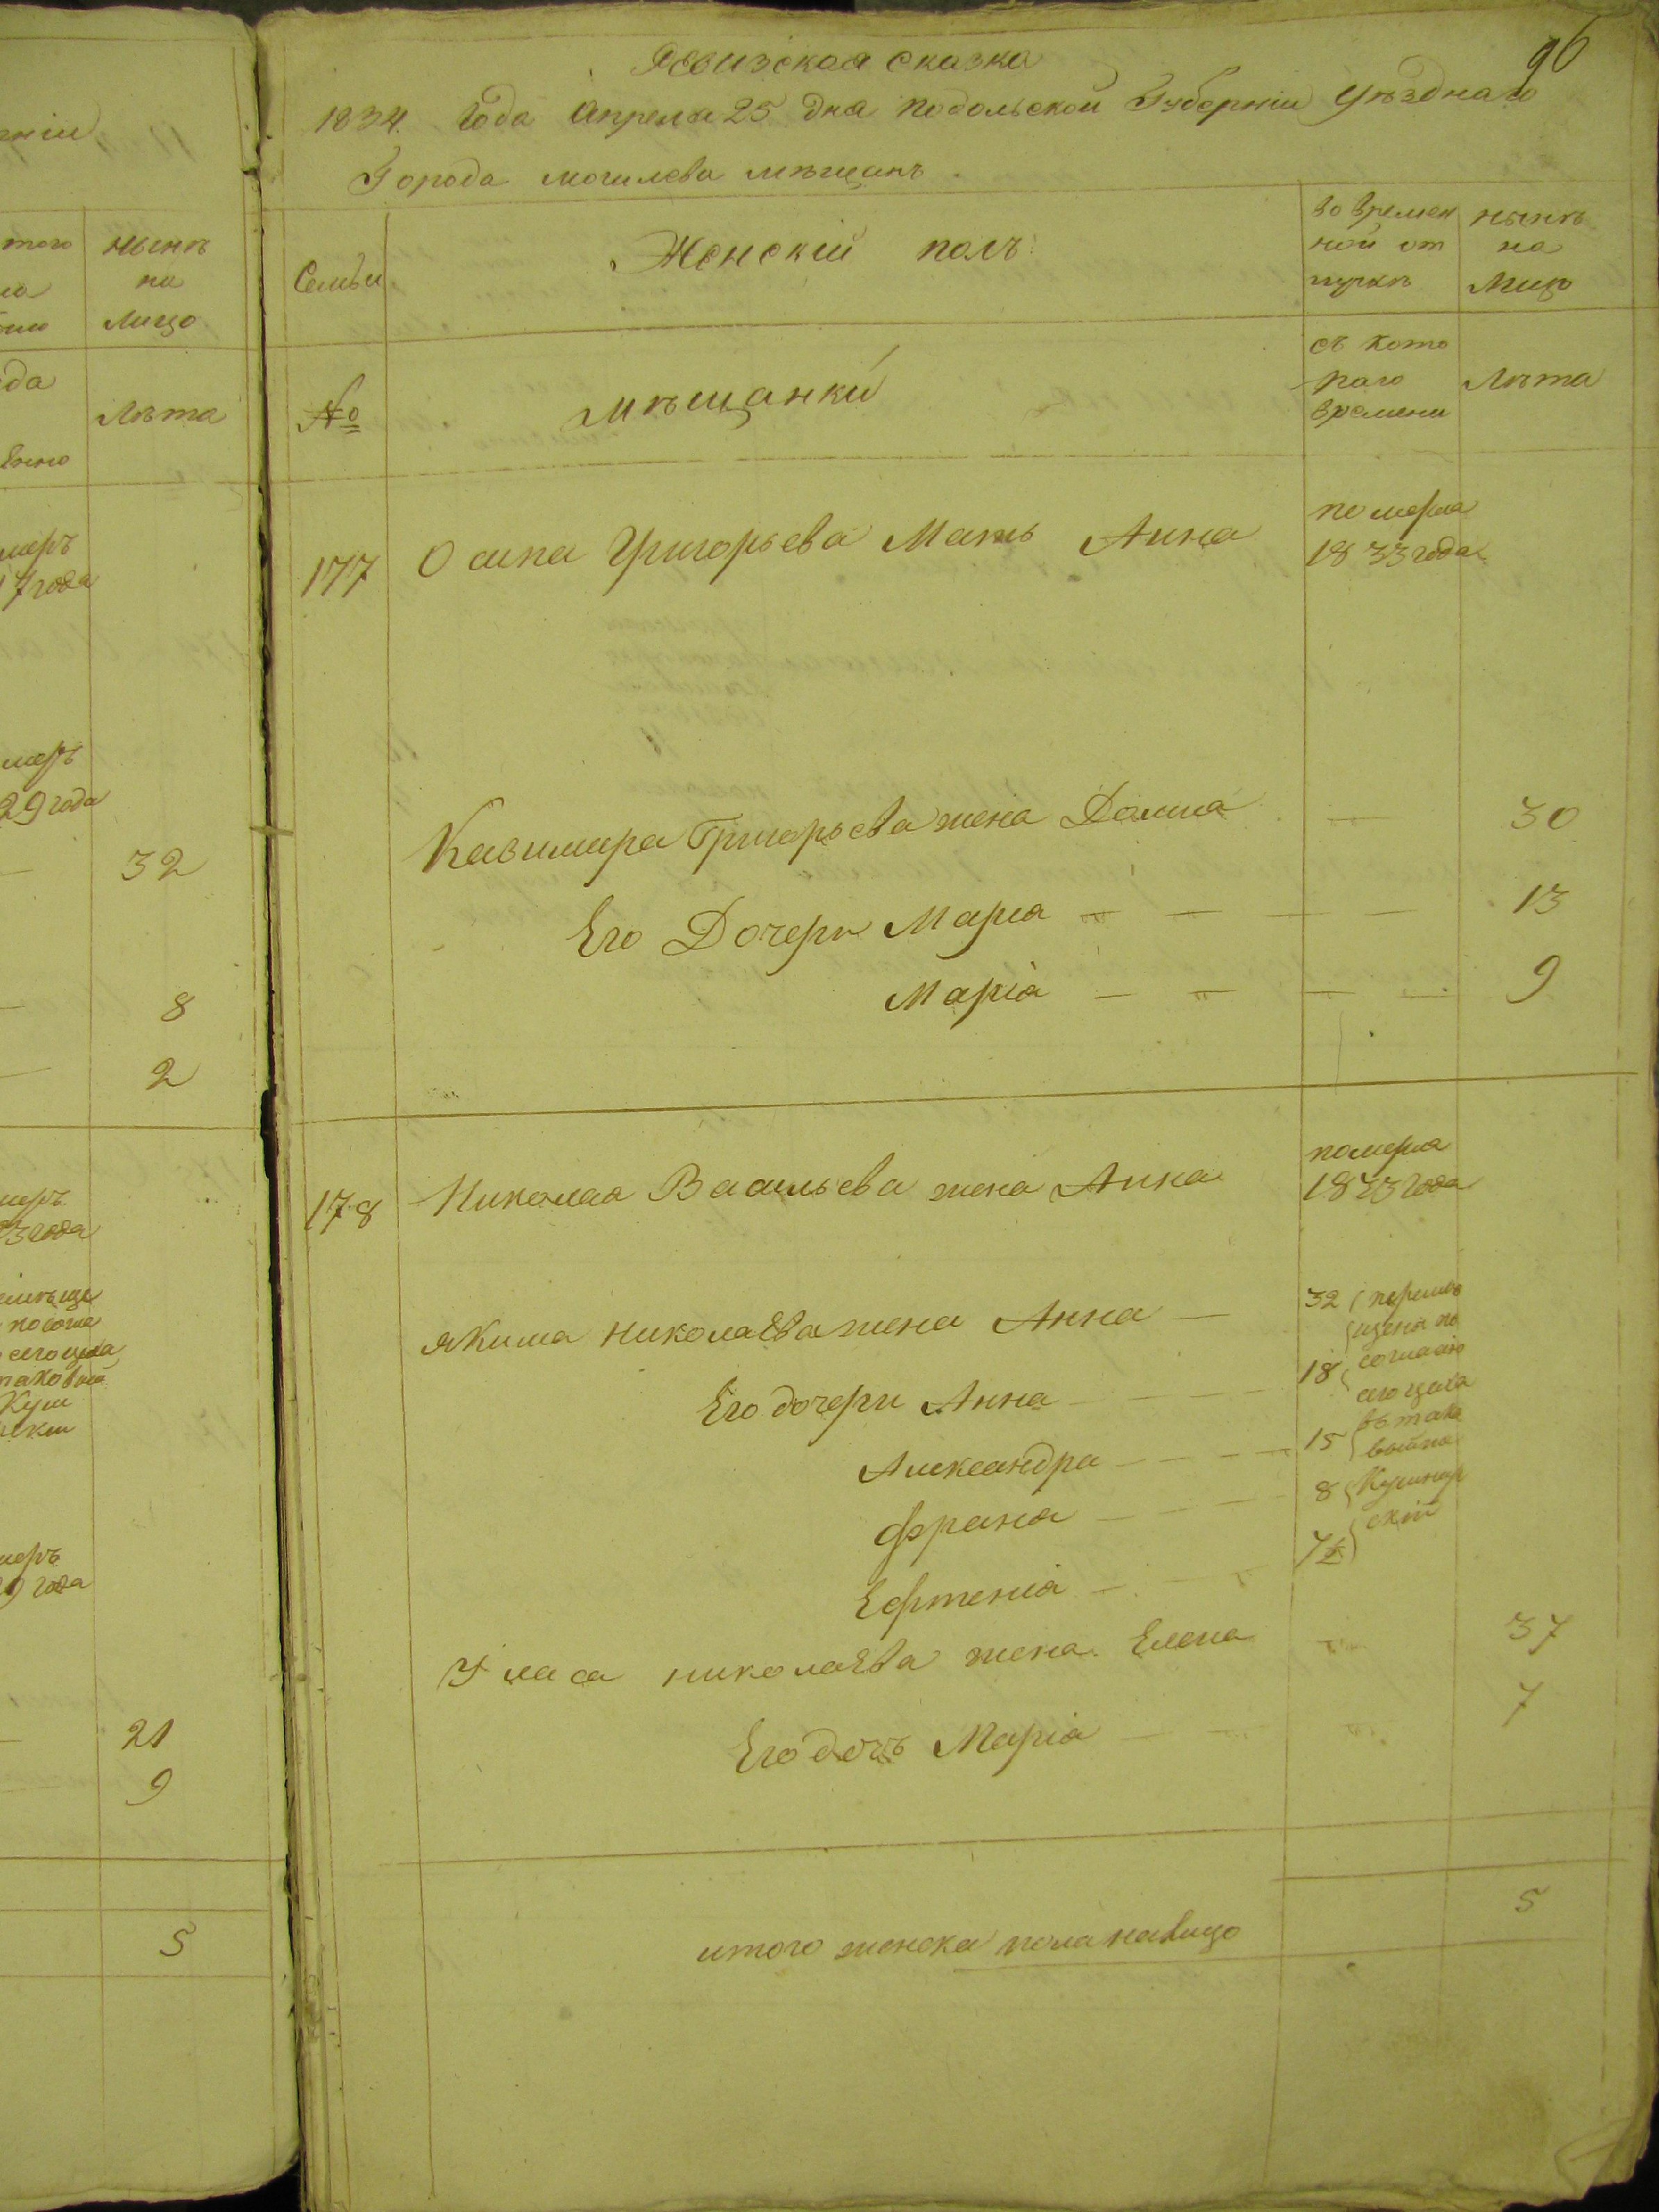 96
Ревизская сказка
1834. Года Апреля 25 дня Подольской Губерніи Уѣзднаго
Города могилева мѣщанъ.
Семьи
Женскій полъ
во времен
ной от
лучкѣ
нынѣ
на
Лицо
№
мѣщанки
съ кото
раго
времени
Лѣта
177 Осипа Григорьева Мать Анна
померла
1833 года
Казимира Григорьева жена Домна — 30
Его Дочери Марія — — — — 13
Марія — — — — 9
178 Николая Васильева жена Анна
померла
1833 года
Якима николаЕва жена Анна — 32
Его дочери Анна — — — 18
Александра — — — 15
Франа — — — 8
Ефтенія — — —
перемѣ
щена по
согласію
сего цеха
въ тако
вый на
ский
Уласа николаЕва жена Елена — 37
Его дочъ Марія — — 7
итого женска пола налицо 5
рніи
того
нынѣ
на
лицо
да
Лѣта
меръ
17 года
меръ
29 года
— 32
— 8
— 2
меръ
3 года
по согла
сего цеха
таковый
меръ
года
— 21
9
5